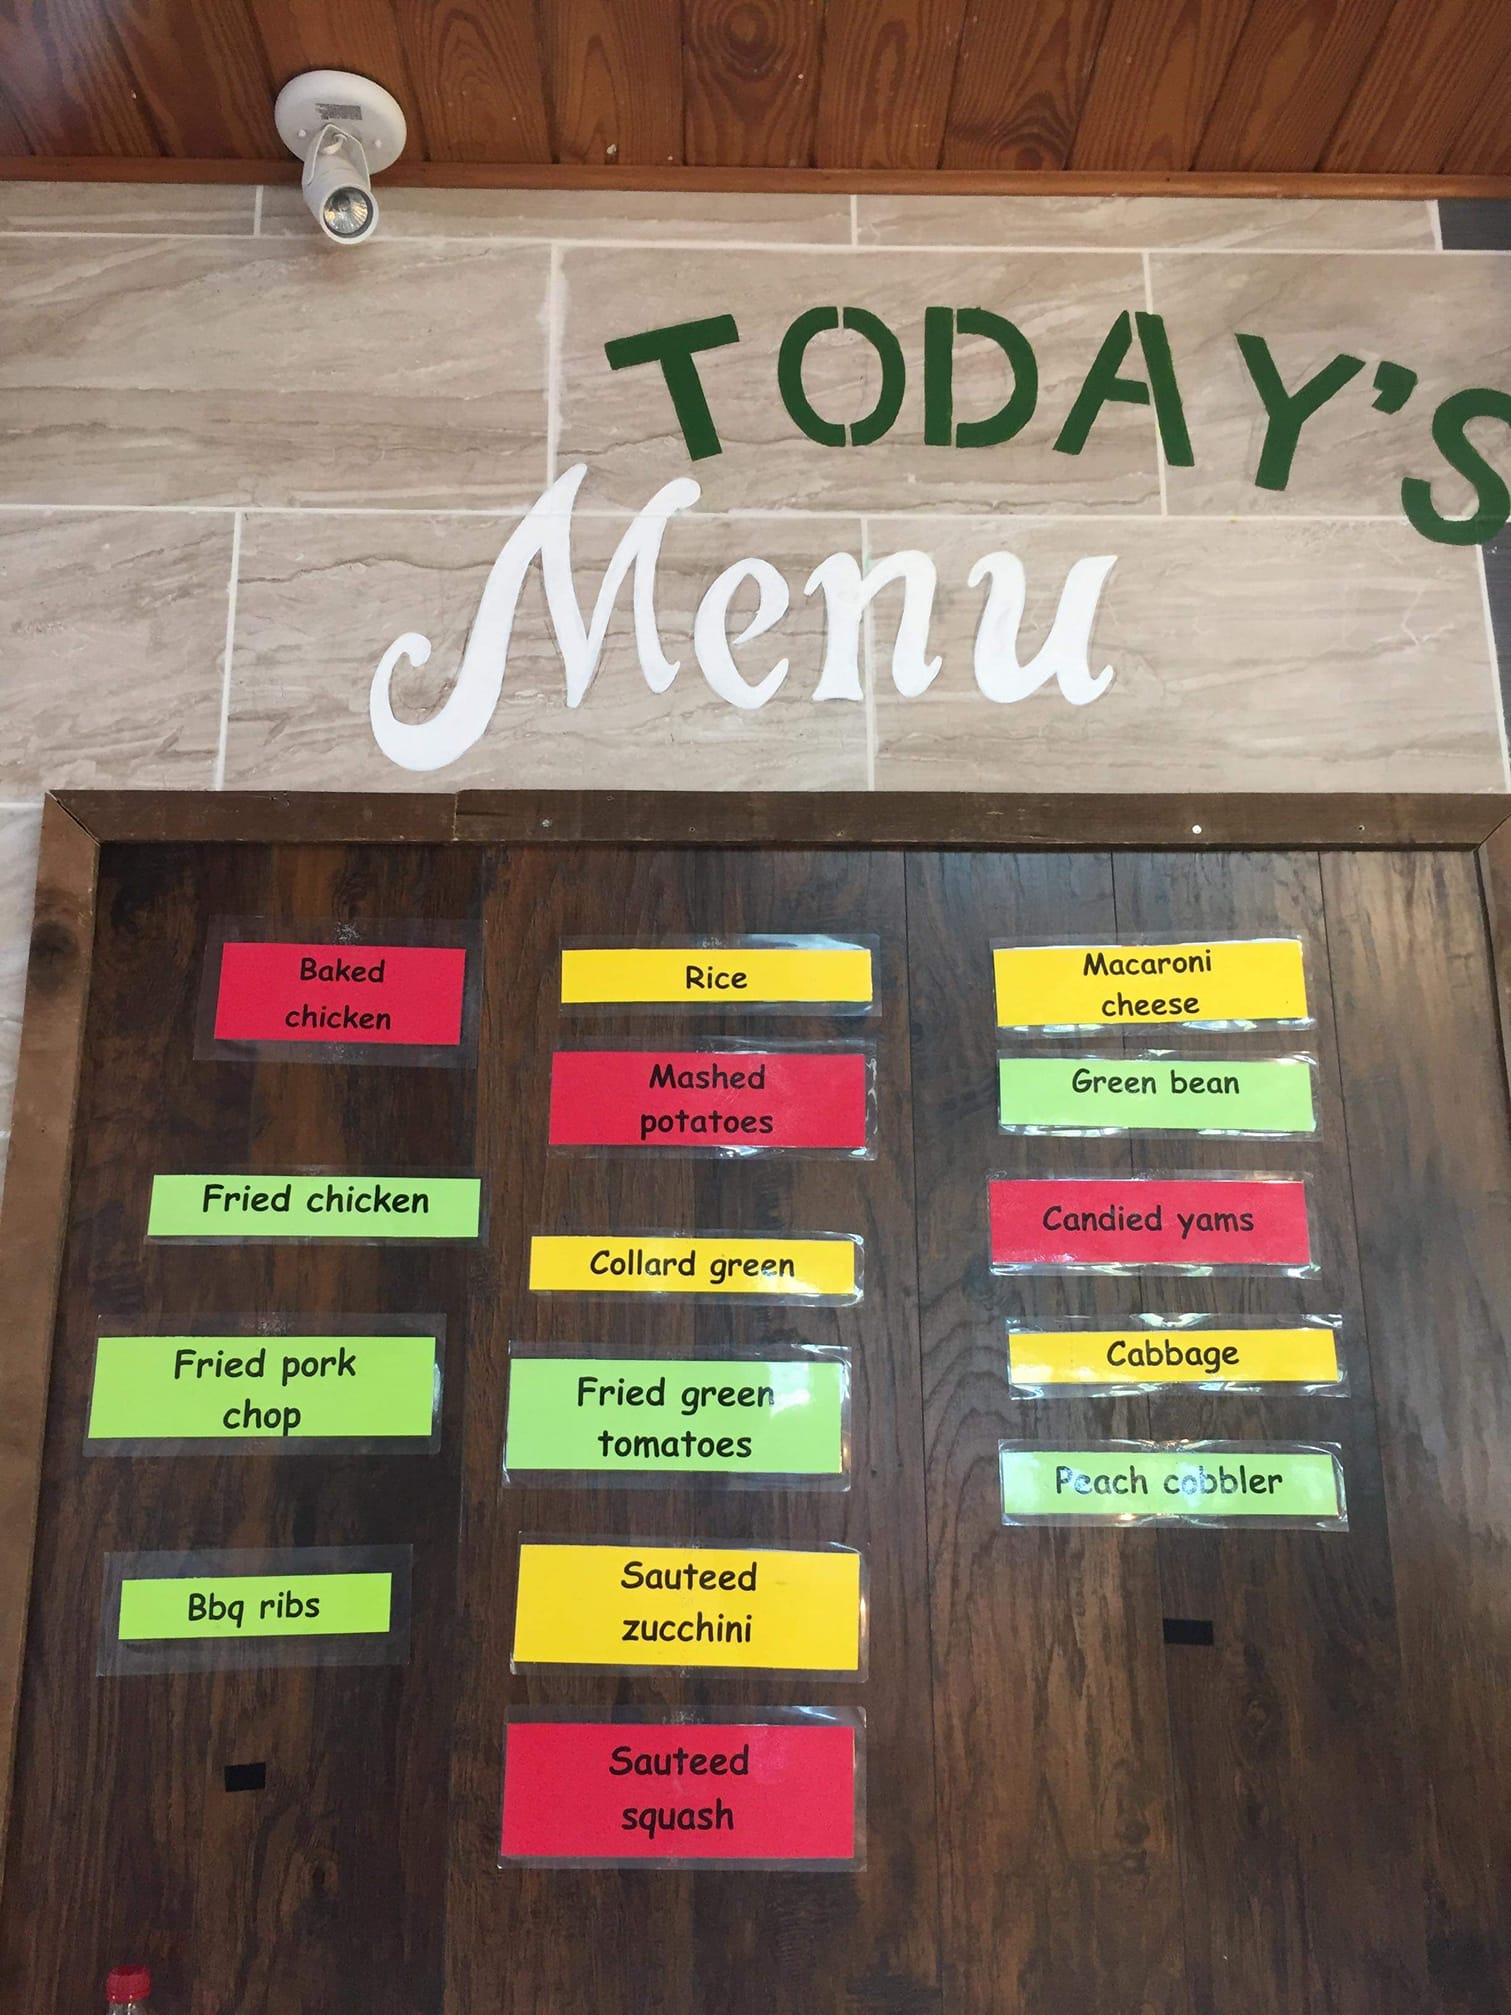 TODAY'S
Menu
Baked
chicken
Fried chicken
Fried pork
chop
Bbq ribs
Rice
Mashed
potatoes
Collard green
Fried green
tomatoes
Sauteed
zucchini
Sauteed
squash
Macaroni
cheese
Green bean
Candied yams
Cabbage
Peach cobbler